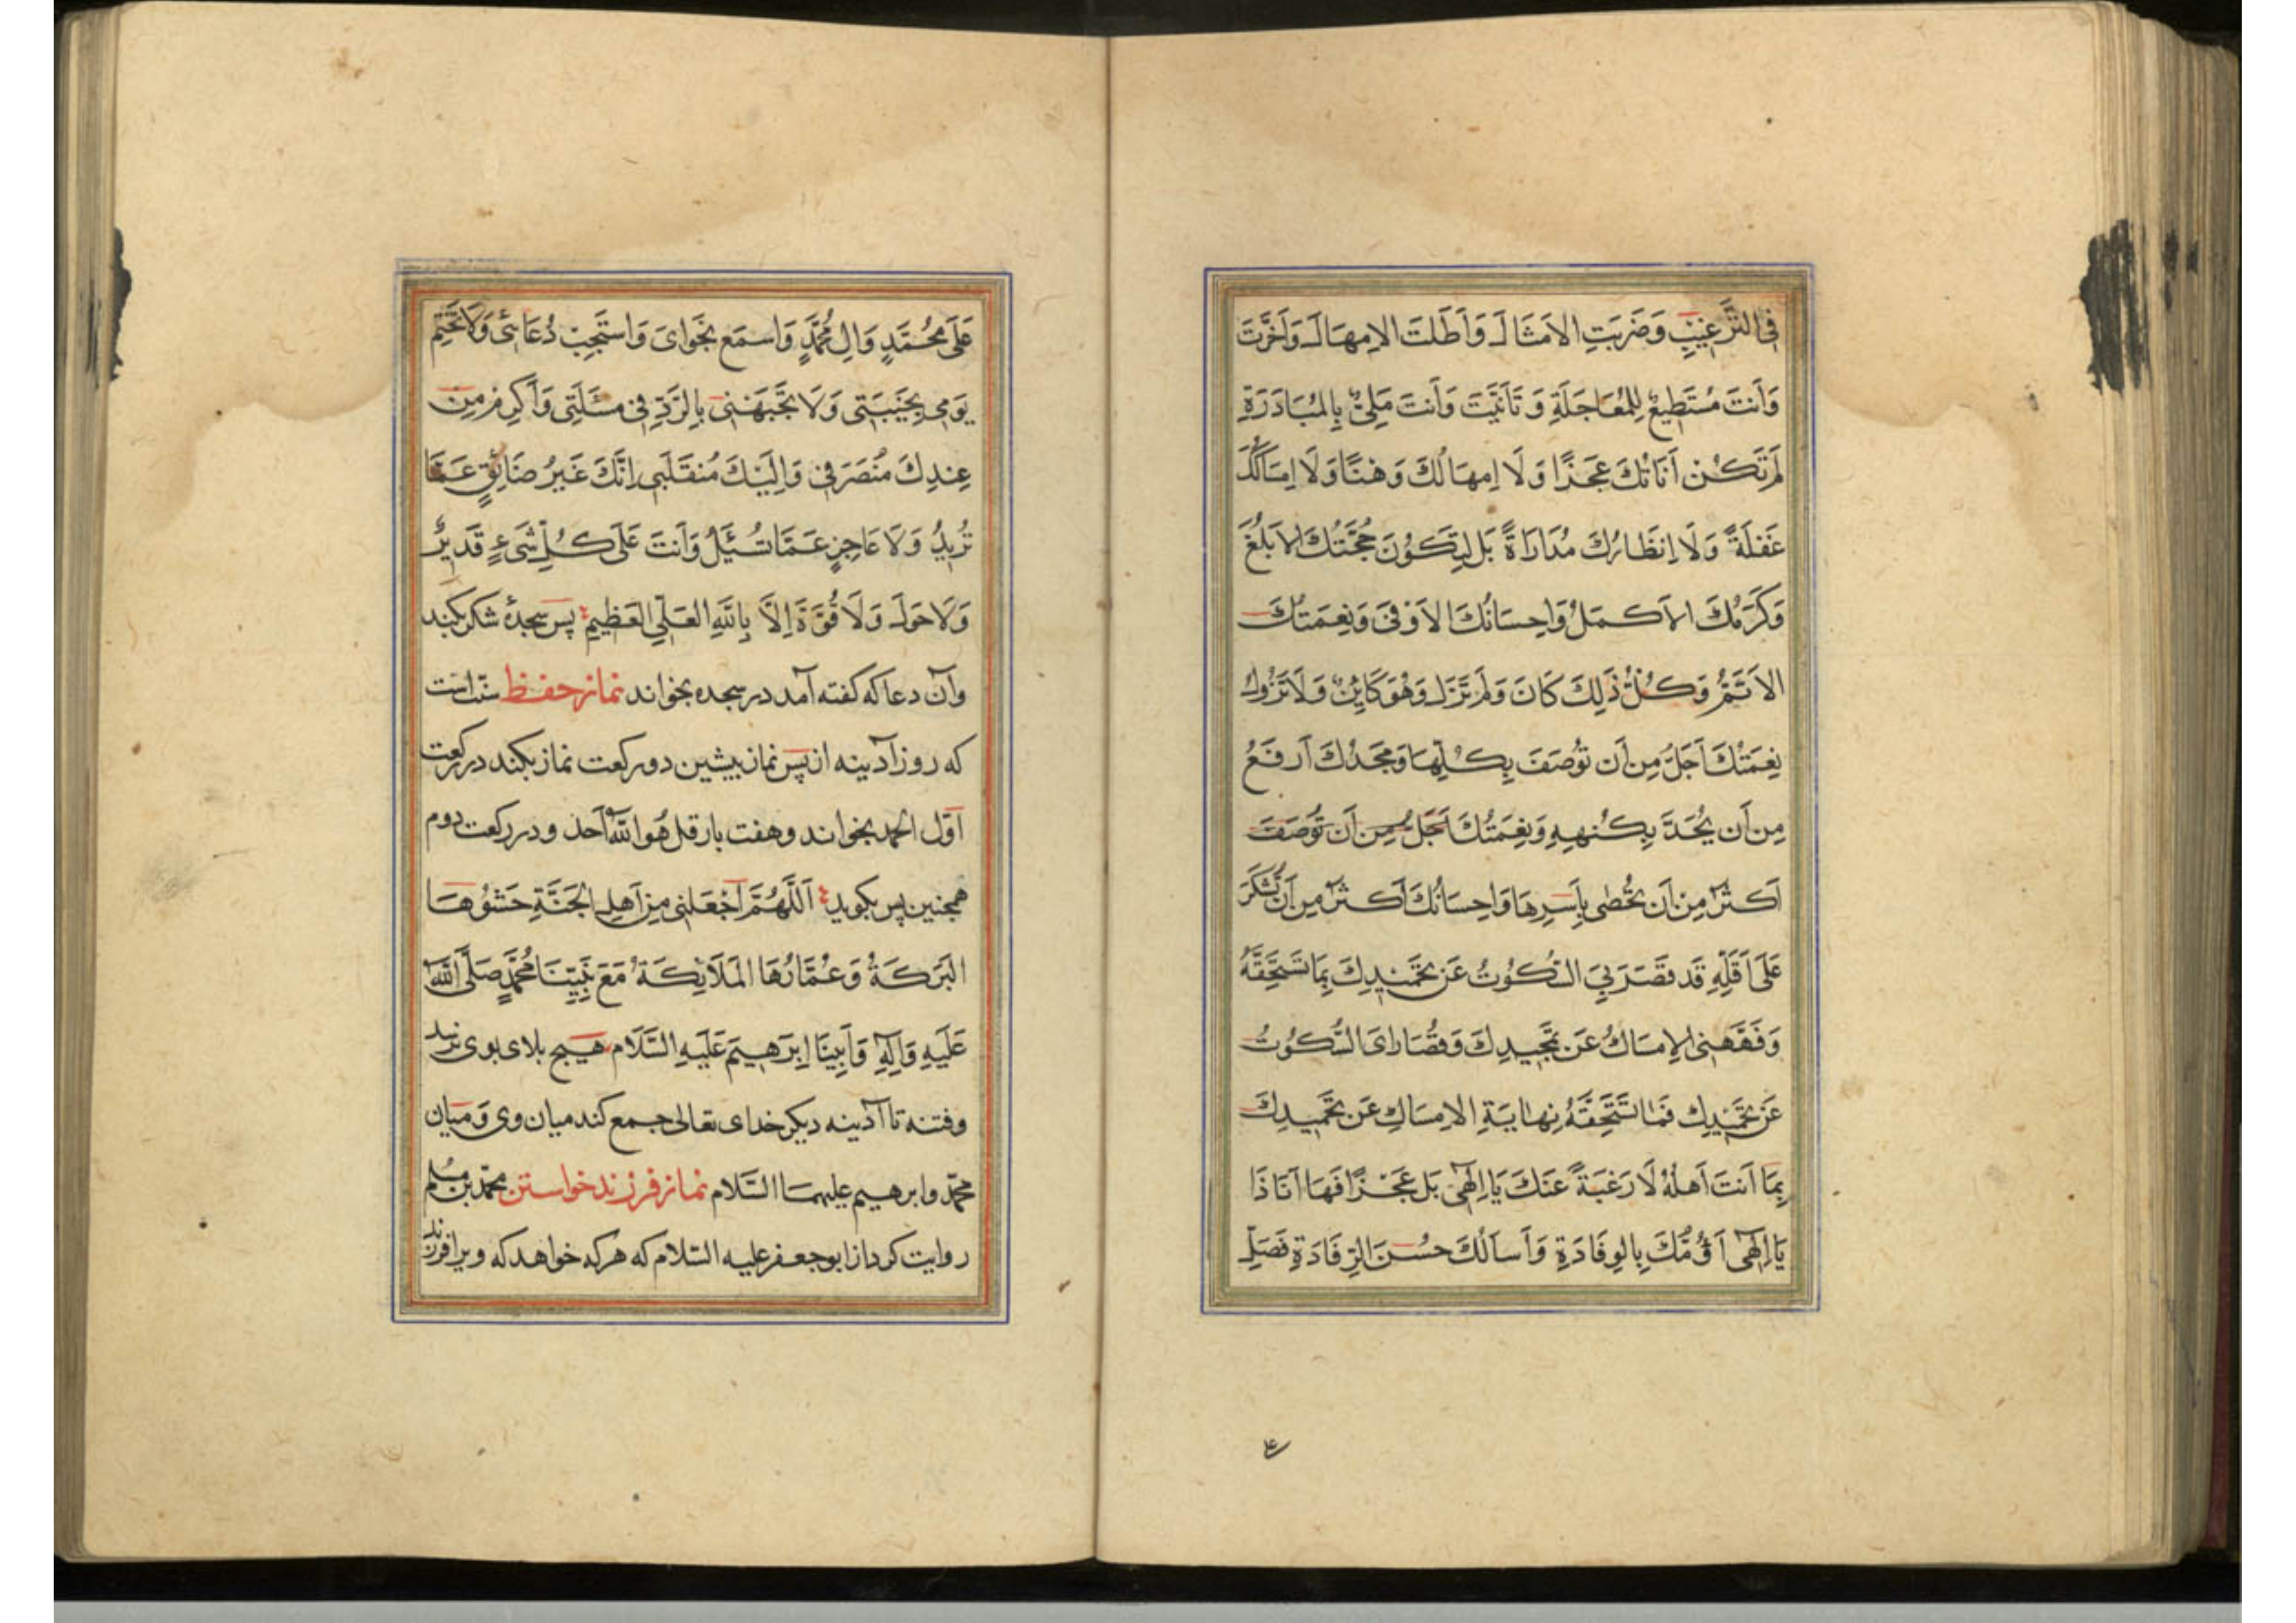 فِی التَّرغِیبِ وَضَرَبتَ الاَمثَالَ وَاَطَلتَ الاِمهَالَ وَاَخَّرتَ
وَاَنتَ مُستَطِیعٌ لِلمُعَاجَلَةِ وَ تَاَنَّیتَ وَاَنتَ مَلِیٌّ بِالمُبَادَرَةِ
لَم تَكُن اَنَاتُكَ عَجزًا وَ لَا اِمهَالُكَ وَهنًا وَلَا اِمسَاكُكَ
غَفلَةً وَلَا اِنظَارُكَ مُدَارَاةً بَل لِتَكُونَ حُجَّتُكَ الاَبلَغَ
وَكَرَمُكَ الاَكمَلُ وَاِحسَانُكَ الاَوفَی وَنِعمَتُكَ
الاَتَمُّ وَكُلُّ ذَلِكَ كَانَ وَلَم تَزَل وَهُوَ كَایِنٌ وَلَا تَزُولُ
نِعمَتُكَ اَجَلُّ مِن اَن تُوصَفَ بِكُلِّهَا وَمَجدُكَ اَرفَعُ
مِن اَن یُحَدَّ بِكُنهِهِ وَنِعمَتُكَ اَجَلُّ مِن اَن تُوصَفَ
اَكثَرُ مِن اَن تُحصٰی بِاَسرِهَا وَاِحسَانُكَ اَكثَرُ مِن اَن تُشكَرَ
عَلَی اَقَلِّهِ قَد قَصَرَ بِیَ السُّكُوتُ عَن تَحمِیدِكَ بِمَا تَستَحِقُّهُ
وَفَهَّهَنِی الاِمسَاكُ عَن تَمجِیدِكَ وَقُصَارَایَ السُّكُوتُ
عَن تَحمِیدِكَ فَمَا تَستَحِقُّهُ نِهَایَةِ الاِمسَاكِ عَن تَحمِیدِكَ
بِمَا اَنتَ اَهلُهُ لَا رَغبَةً عَنكَ یَا اِلٰهِی بَل عَجزًا فَهَا اَنَا ذَا
یَا اِلٰهِی اَؤُمُّكَ بِالوِفَادَةِ وَاَساَلُكَ حُسنَ الرِّفَادَةِ فَصَلِّ
ع
عَلَی مُحَمَّدٍ وَاٰلِ مُحَمَّدٍ وَاسمَع نَجوَایَ وَاستَجِب دُعَائِی وَلَا تَختِم
یَومِی بِخَیبَتِی وَلَا تَجبَهنِی بِالرَّدِّ فِی مَسئَلَتِی وَاَكرِم مِن
عِندِكَ مُنصَرَفِی وَاِلَیكَ مُنقَلَبِی اِنَّكَ غَیرُ ضَائِقٍ عَمَّا
تُرِیدُ وَلَا عَاجِزٍ عَمَّا تُسئَلُ وَاَنتَ عَلَی كُلِّ شَیءٍ قَدِیرٌ
وَلَا حَولَ وَلَا قُوَّةَ اِلَّا بِاللّٰهِ العَلِیِّ العَظِیمِ پس سجدۀ شكر بكند
وآن دعا كه كفته آمد در سجده بخواند نماز حفظ سنّت است
كه روز آدینه از پس نماز پیشین دو ركعت نماز بكند در ركعت
اَوّل الحمد بخواند و هفت بار قل هُوَ اللّٰه اَحد و در ركعت دوم
همچنین پس بكوید اَللّٰهُمَّ اجْعَلنِی مِن اَهلِ الجَنَّةِ حَشوُهَا
البَرَكَةُ وَعُمَّارُهَا المَلَائِكَةُ مَعَ نَبِیِّنَا مُحَمَّدٍ صَلَّی اللّٰهُ
عَلَیهِ وَاٰلِهِ وَاَبِینَا اِبرٰهِیمَ عَلَیهِ السَّلَام هیچ بلای بوی نرسد
وفتنه تا آدینه دیكر خدای تعالی جمع كند میان وی وَ میان
محمّد وابرهیم علیهما السَّلام نماز فرزند خواستن محمّد بن مُسلم
روایت كرد از ابوجعفر علیه السّلام كه هر كه خواهد كه ویرا فرزند